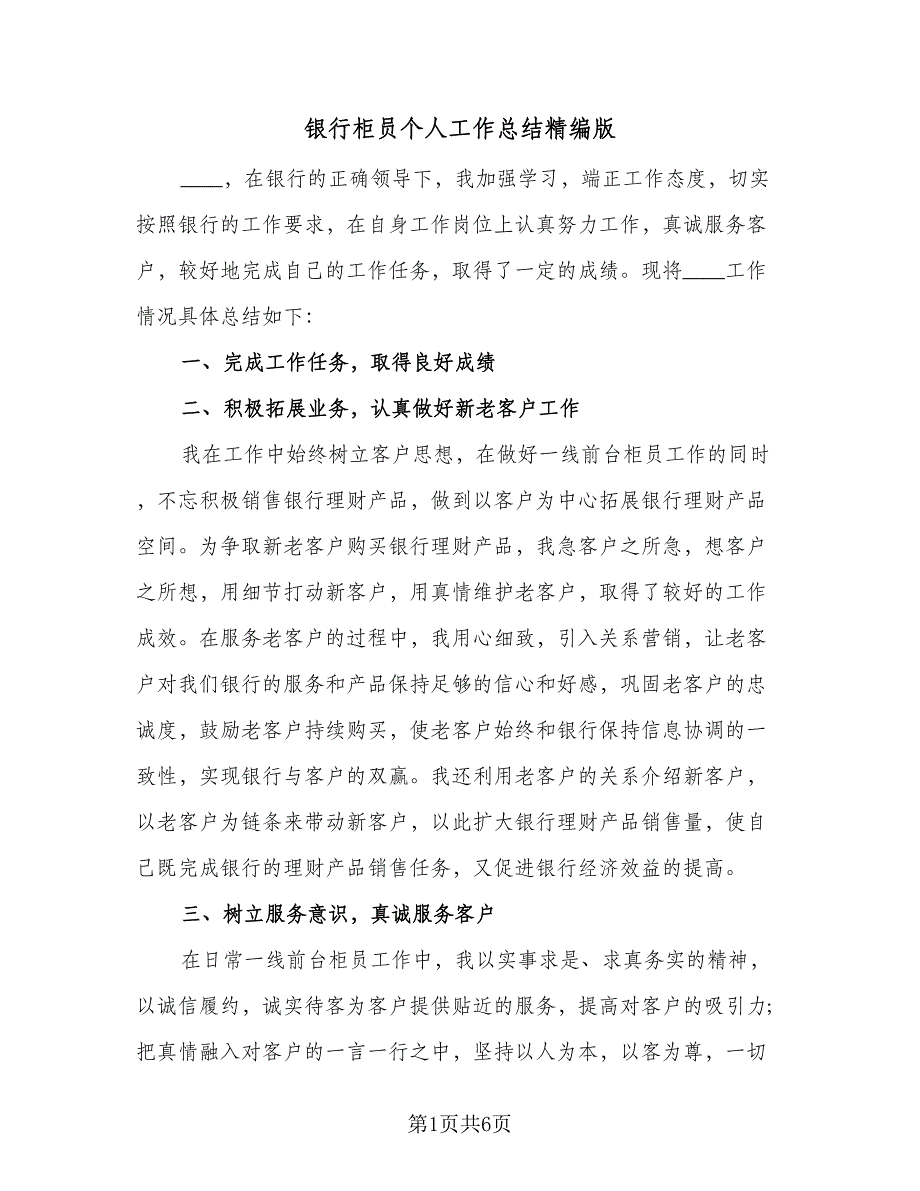 银行柜员个人工作总结精编版
____，在银行的正确领导下，我加强学习，端正工作态度，切实
按照银行的工作要求，在自身工作岗位上认真努力工作，真诚服务客
户，较好地完成自己的工作任务，取得了一定的成绩。现将____工作
情况具体总结如下：
一、完成工作任务，取得良好成绩
二、积极拓展业务，认真做好新老客户工作
我在工作中始终树立客户思想，在做好一线前台柜员工作的同时
，不忘积极销售银行理财产品，做到以客户为中心拓展银行理财产品
空间。为争取新老客户购买银行理财产品，我急客户之所急，想客户
之所想，用细节打动新客户，用真情维护老客户，取得了较好的工作
成效。在服务老客户的过程中，我用心细致，引入关系营销，让老客
户对我们银行的服务和产品保持足够的信心和好感，巩固老客户的忠
诚度，鼓励老客户持续购买，使老客户始终和银行保持信息协调的一
致性，实现银行与客户的双赢。我还利用老客户的关系介绍新客户，
以老客户为链条来带动新客户，以此扩大银行理财产品销售量，使自
己既完成银行的理财产品销售任务，又促进银行经济效益的提高。
三、树立服务意识，真诚服务客户
在日常一线前台柜员工作中，我以实事求是、求真务实的精神，
以诚信履约，诚实待客为客户提供贴近的服务，提高对客户的吸引力;
把真情融入对客户的一言一行之中，坚持以人为本，以客为尊，一切
第1页共6页